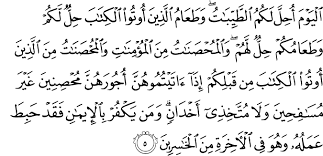 ٱلۡيَوۡمَ أُحِلَّ لَكُمُ ٱلطَّيِّبَٰتُۖ وَطَعَامُ ٱلَّذِينَ أُوتُواْ ٱلۡكِتَٰبَ حِلّٞ لَّكُمۡ
وَطَعَامُكُمۡ حِلّٞ لَّهُمۡۖ وَٱلۡمُحۡصَنَٰتُ مِنَ ٱلۡمُؤۡمِنَٰتِ وَٱلۡمُحۡصَنَٰتُ مِنَ ٱلَّذِينَ
أُوتُواْ ٱلۡكِتَٰبَ مِن قَبۡلِكُمۡ إِذَآ ءَاتَيۡتُمُوهُنَّ أُجُورَهُنَّ مُحۡصِنِينَ غَيۡرَ
مُسَٰفِحِينَ وَلَا مُتَّخِذِيٓ أَخۡدَانٖۗ وَمَن يَكۡفُرۡ بِٱلۡإِيمَٰنِ فَقَدۡ حَبِطَ
عَمَلُهُۥ وَهُوَ فِي ٱلۡأٓخِرَةِ مِنَ ٱلۡخَٰسِرِينَ ٥